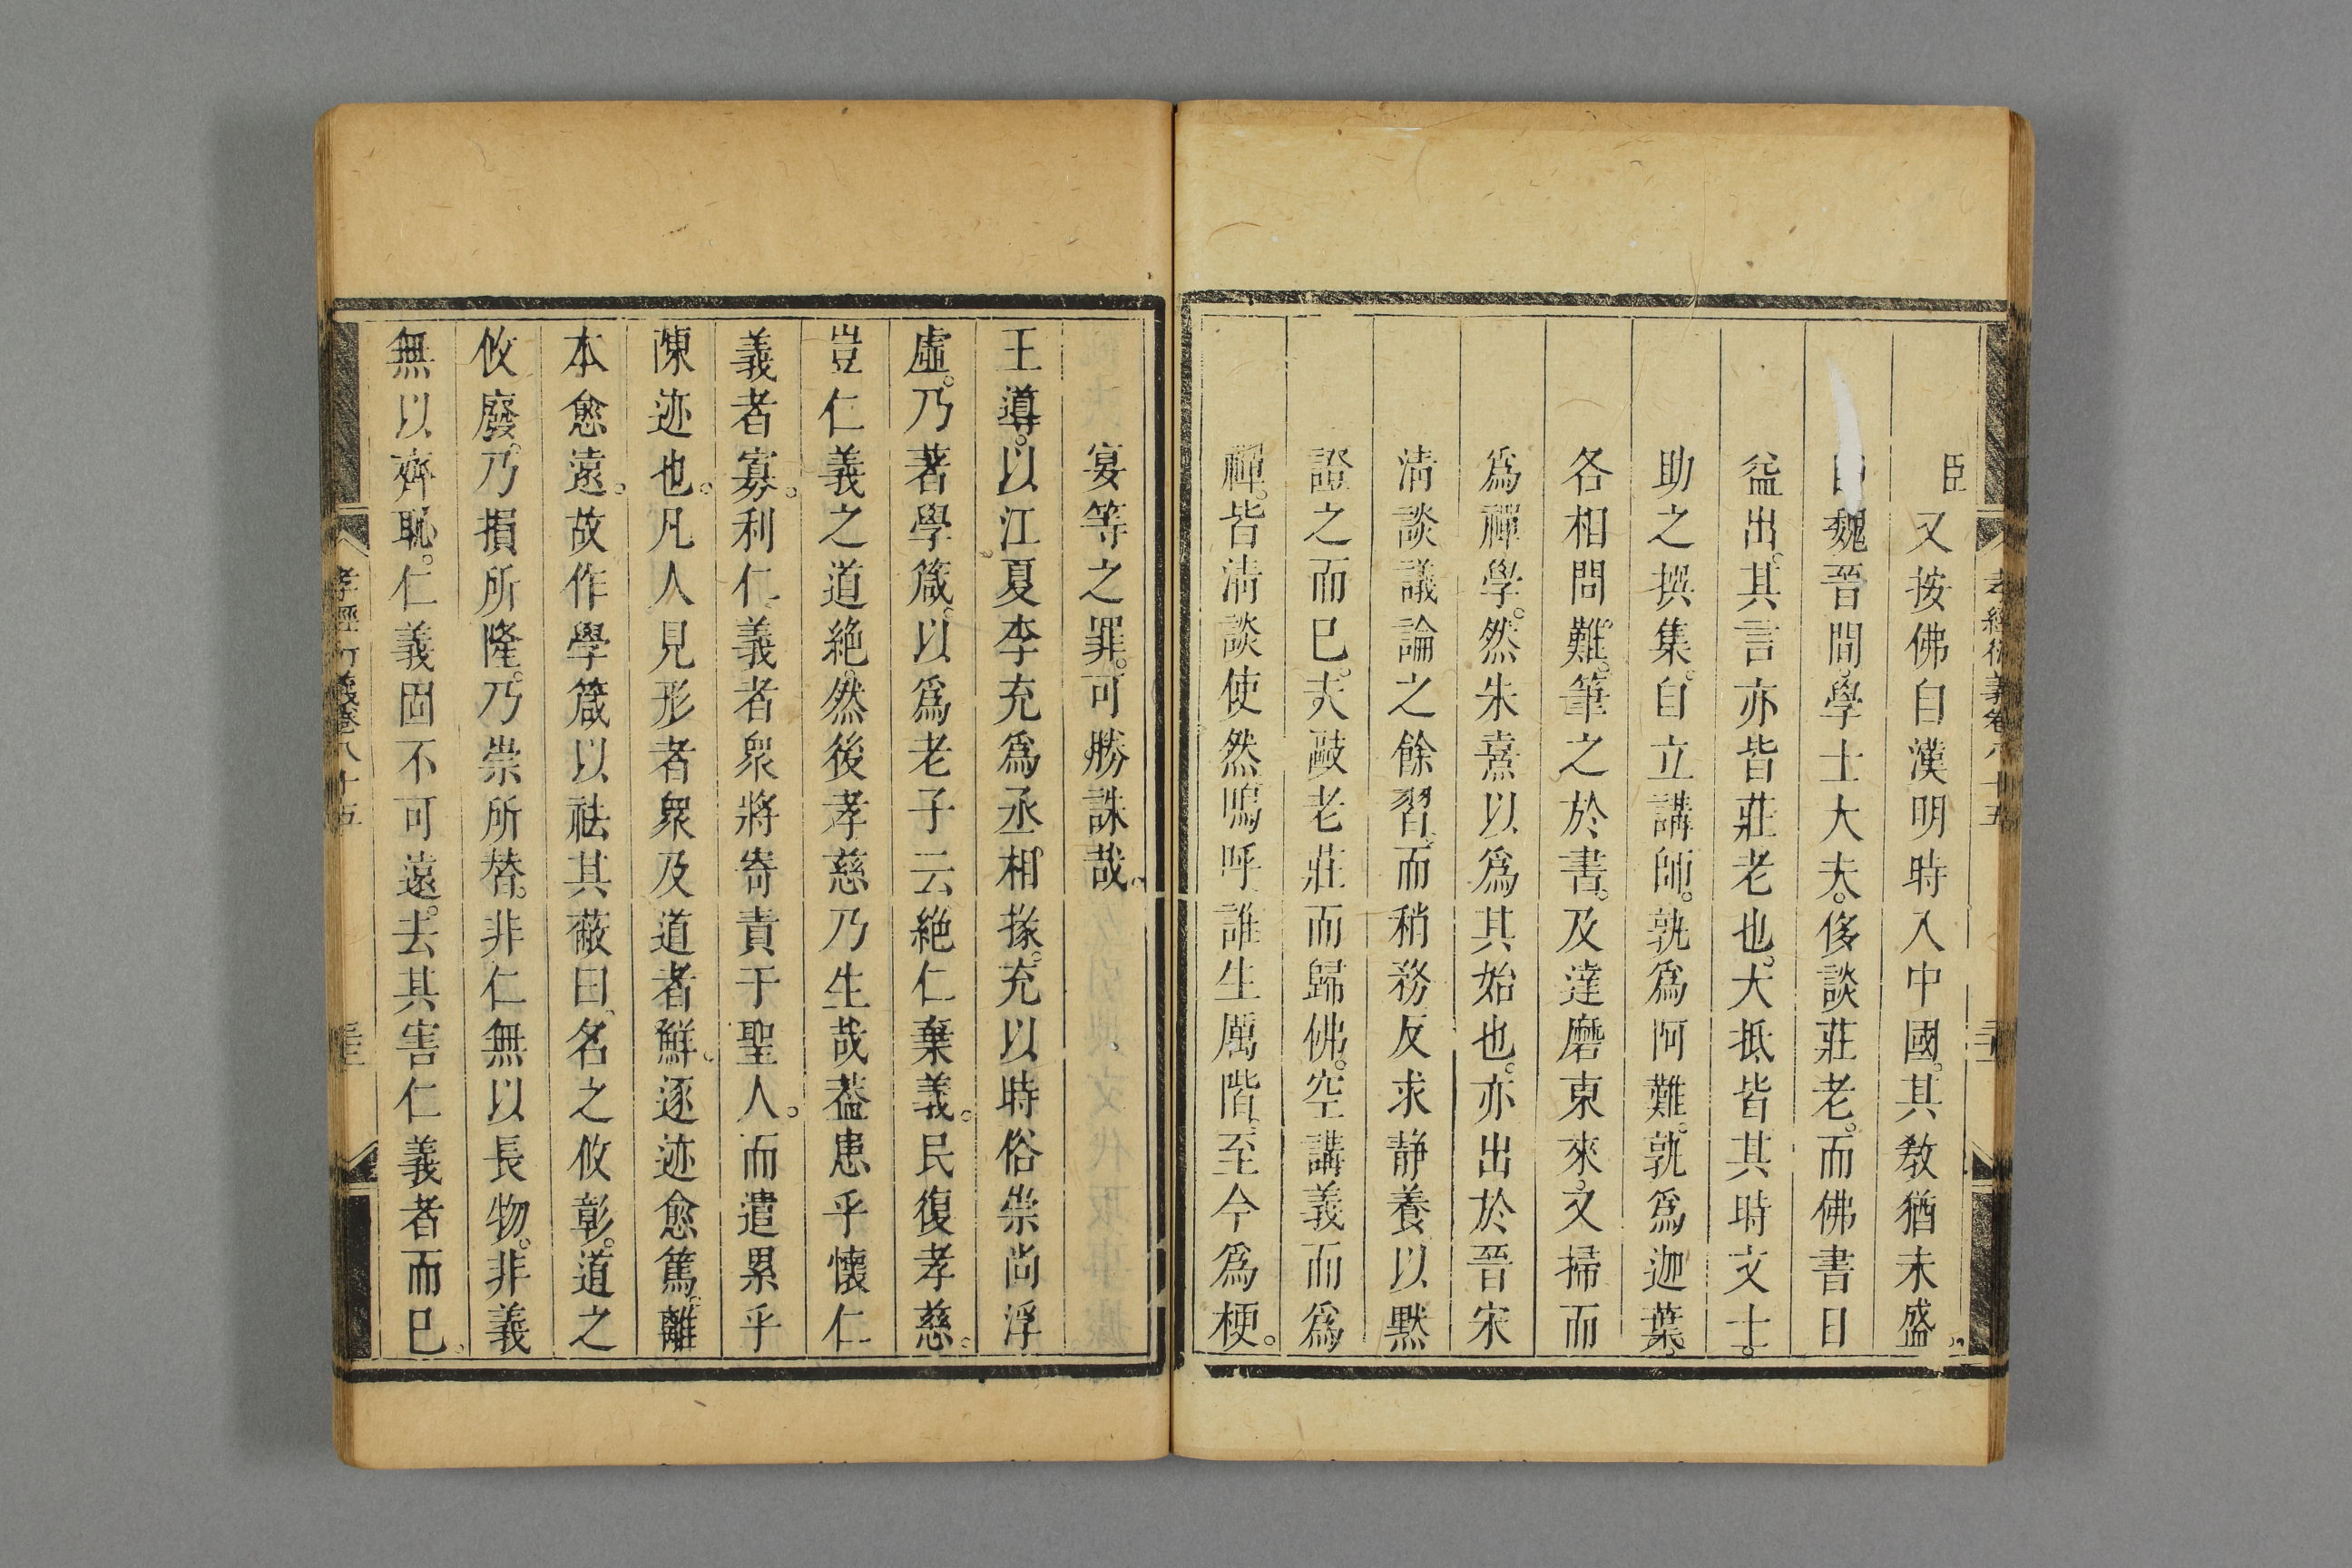 臣又按佛自漢明時入中國。其教猶未盛。
魏晉間。學士大夫。侈談莊老。而佛書日
益出。其言亦皆莊老也。大抵皆其時文士。
助之撰集。自立講師。孰爲阿難。孰爲迦葉。
各相問難。筆之於書。及達磨東來。又掃而
爲禪學。然朱熹以爲其始也。亦出於晉宋
清談議論之餘習。而稍務反求靜養以默
證之而已。夫敺老莊而歸佛。空講義而爲
禪。皆清談使然。嗚呼。誰生厲階。至今爲梗。
宴等之罪。可勝誅哉。
王導。以江夏李充爲丞相掾。充以時俗崇尚浮
虛。乃著學箴。以爲老子云絶仁棄義。民復孝慈。
豈仁義之道絶。然後孝慈乃生哉。葢患乎懷仁
義者寡。利仁義者衆。將寄責于聖人。而遣累乎
陳迹也。凡人見形者衆。及道者鮮。逐迹愈篤。離
本愈遠。故作學箴。以祛其蔽曰。名之攸彰。道之
攸廢。乃損所隆。乃崇所替。非仁無以長物。非義
無以齊恥。仁義固不可遠。去其害仁義者而已。
孝經衍義卷八十五